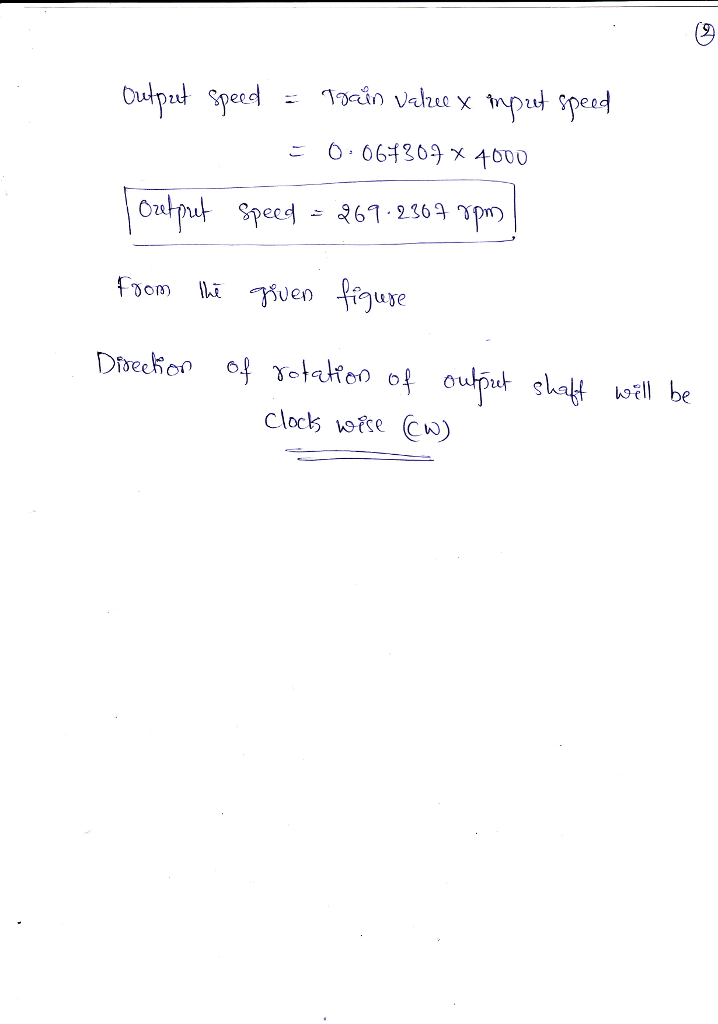 (2)
Output speed = Train value x input speed
= 0.067307 x 4000
Output speed = 269.2307 rpm
From the given figure
Direction of rotation of output shaft will be
Clock wise (CW)